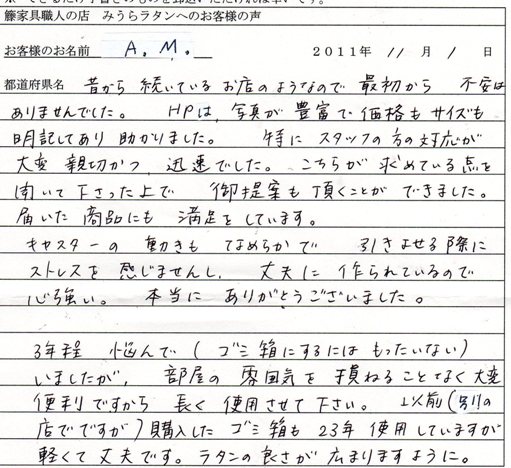 籐家具職人の店　みうらラタンへのお客様の声
お客様のお名前　A.M.　2011年 11月 1日
都道府県名　昔から 続いている お店のようなので 最初から 不安は
ありませんでした。 HPは、写真が 豊富で 価格も サイズも
明記してあり 助かりました。 特に スタッフの 方の 対応が
大変 親切かつ 迅速でした。 こちらが 求めている 点を
聞いて 下さった上で 御提案も 頂くことが できました。
届いた 商品にも 満足を しています。
キャスターの 動きも なめらかで 引きよせる 際に
ストレスを 感じませんし、 丈夫に 作られているので
心強い。 本当に ありがとうございました。
3年程 悩んで（ ゴミ箱にするには もったいない）
いましたが、 部屋の 雰囲気を 損ねる ことなく 大変
便利ですから 長く 使用させて 下さい。 以前（別の
店でですが）購入した ゴミ箱も 23年 使用していますが
軽くて 丈夫です。 ラタンの 良さが 広まりますように。